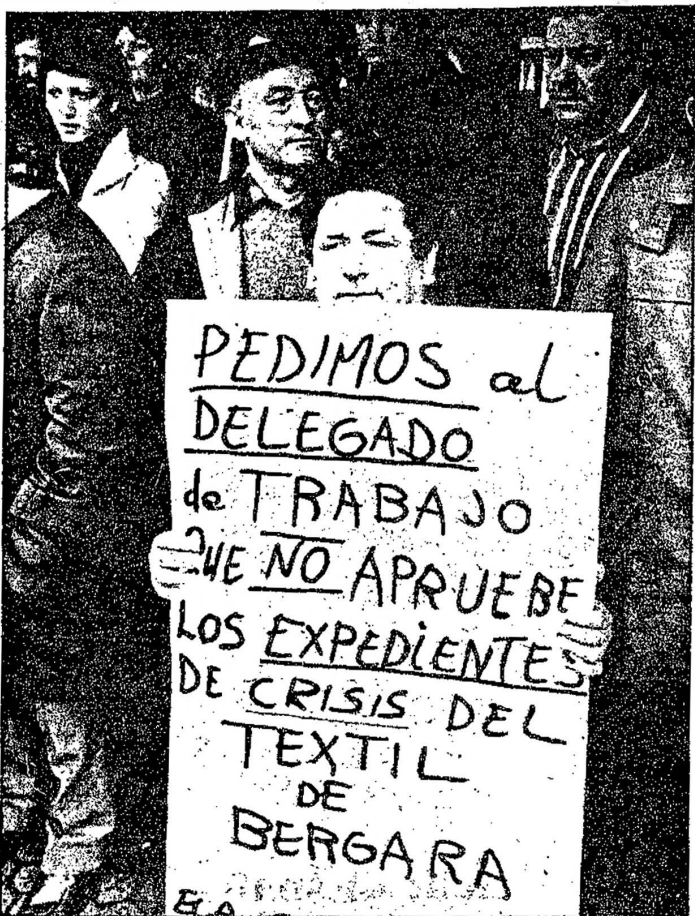 PEDIMOS al
DELEGADO
de TRABAJO
QUE NO APRUEBE
LOS EXPEDIENTES
DE CRISIS DEL
TEXTIL
DE
BERGARA